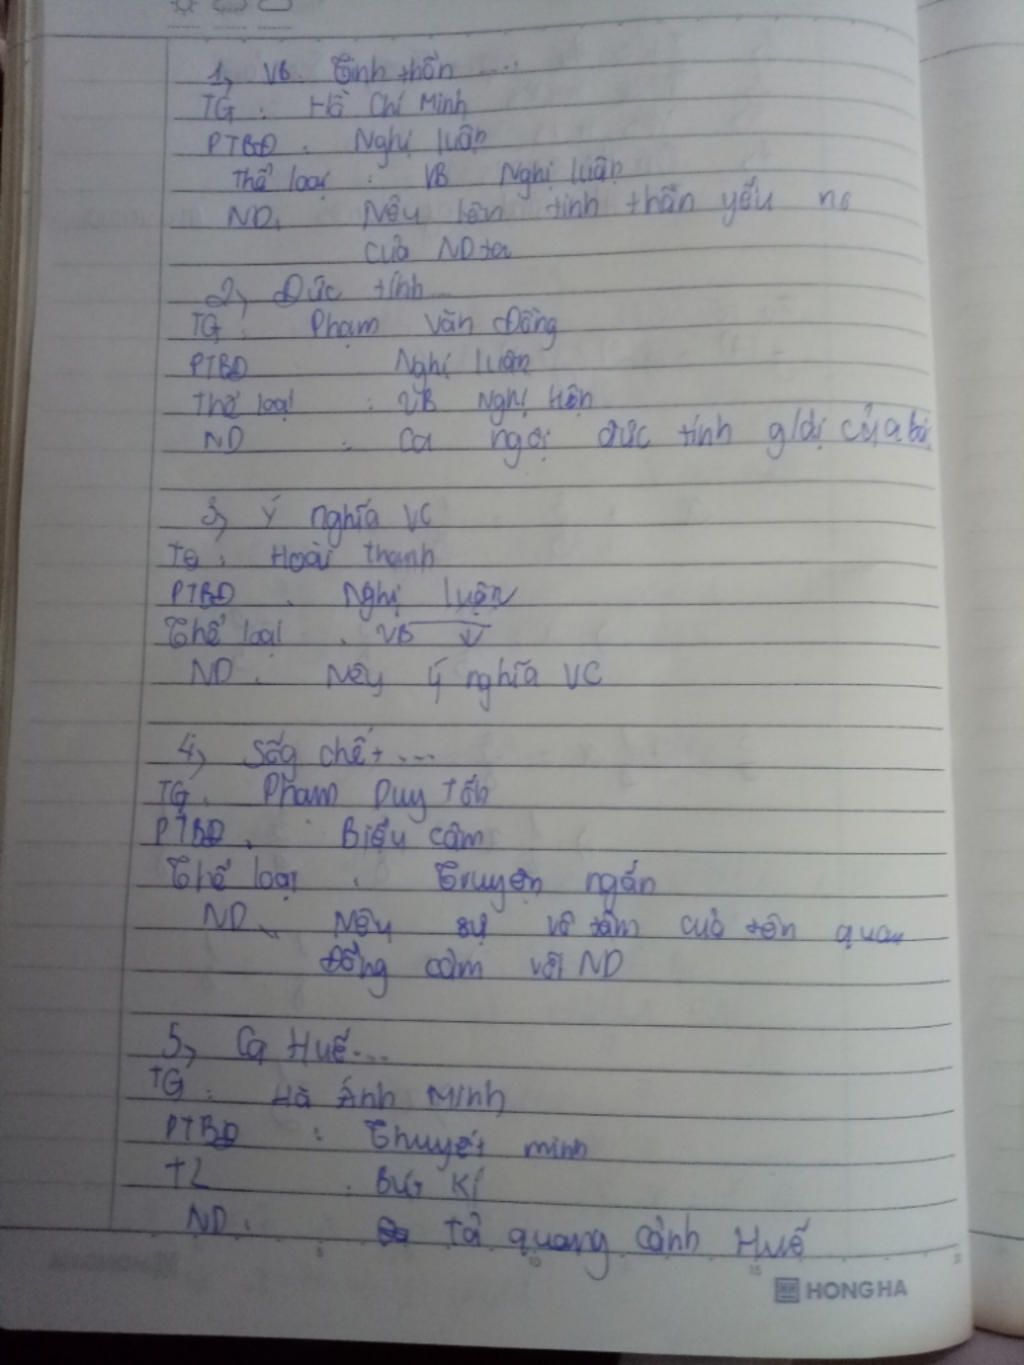 1, VB. Tinh thần ....
TG : Hồ Chí Minh
PTBĐ : Nghị luận
Thể loại : VB Nghị luận
ND : Nêu lên tinh thần yêu nc
của ND ta
2, Đức tính...
TG : Phạm Văn Đồng
PTBĐ Nghị luận
Thể loại : VB Nghị luận
ND : Ca ngợi đức tính g/dị của bác
3, Ý nghĩa VC
TG : Hoài Thanh
PTBĐ : Nghị luận
Thể loại : VB
ND : Nêu ý nghĩa VC
4, Sống chết ...
TG : Phạm Duy Tốn
PTBĐ : Biểu cảm
Thể loại : Truyện ngắn
ND : Nêu sự vô tâm của tên quan
Đồng cảm với ND
5, Ca Huế ...
TG : Hà Ánh Minh
PTBĐ : Thuyết minh
TL : Bút Kí
ND : Tả quang cảnh Huế
HONG HA